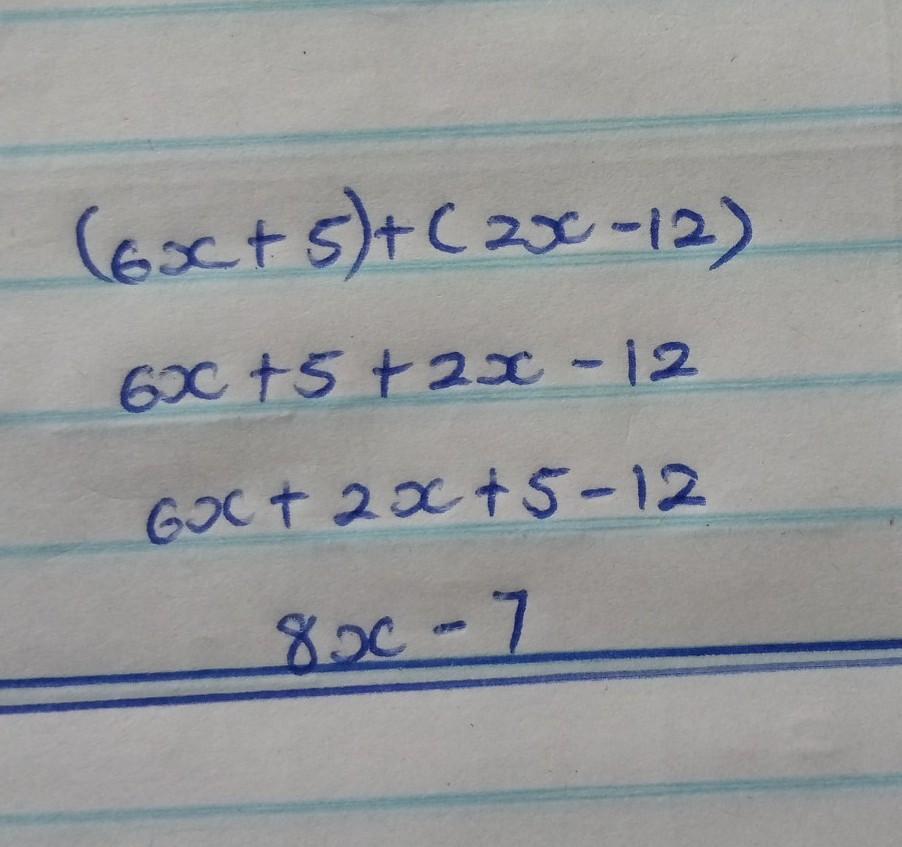 (6x + 5) + (2x - 12)
6x + 5 + 2x - 12
6x + 2x + 5 - 12
8x - 7